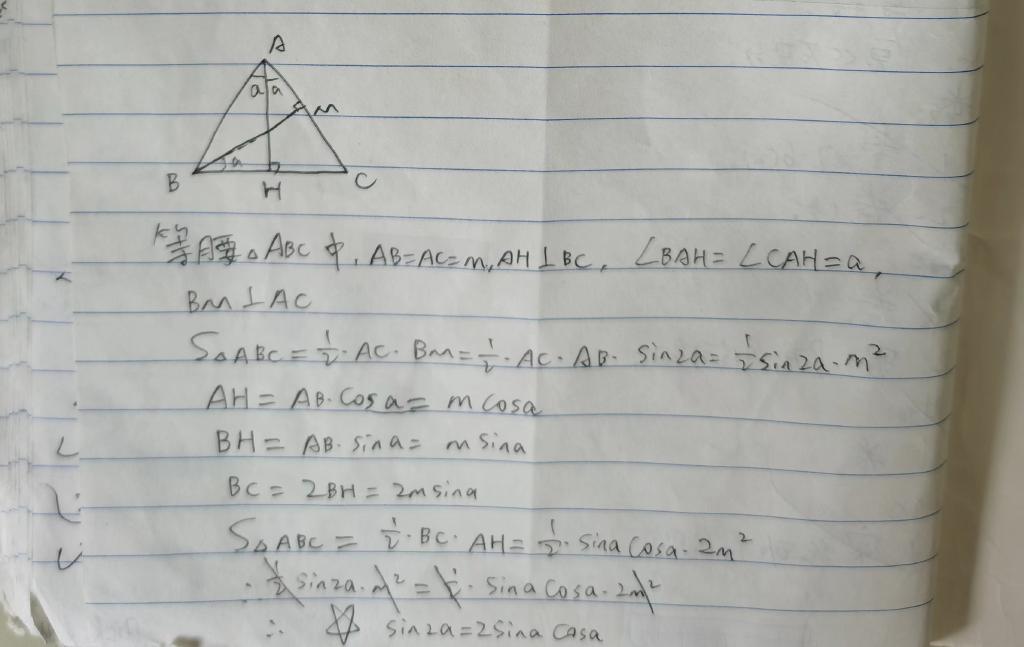 A
a a
M
a
B H C
等腰△ABC中, AB=AC=m, AH⊥BC, ∠BAH=∠CAH=a,
BM⊥AC
S△ABC=½·AC·BM=½·AC·AB·sin2a=½sin2a·m²
AH=AB·cosa=mcosa
BH=AB·sina=msina
BC=2BH=2msina
S△ABC=½·BC·AH=½·sinacosa·2m²
∴½sin2a·m²=½·sinacosa·2m²
∴ ☆ sin2a=2sinacosa